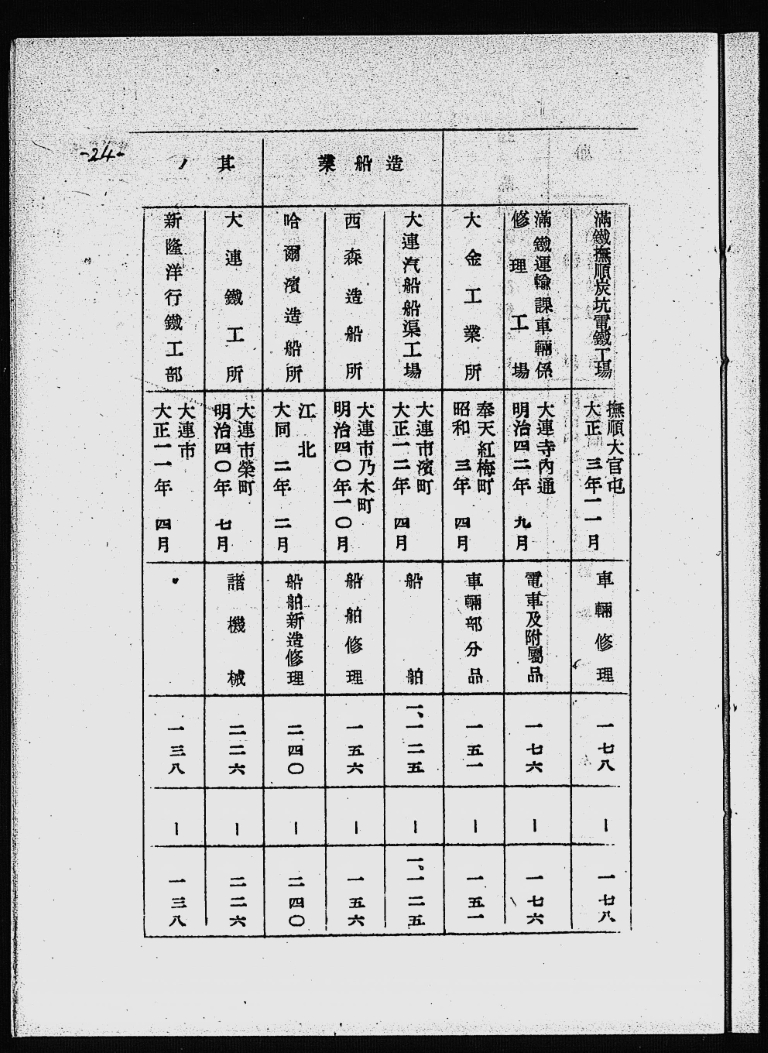 -24-
他
滿鐵撫順炭坑電鐵工場
撫順大官屯
大正 三年一一月
車輛修理
一七八
ー
一七八
滿鐵運輸課車輛係
修理工場
大連寺內通
明治四二年 九月
電車及附屬品
一七六
ー
一七六
大金工業所
奉天紅梅町
昭和 三年 四月
車輛部分品
一五一
ー
一五一
造船業
大連汽船船渠工場
大連市濱町
大正一二年 四月
船舶
一、一二五
ー
一、一二五
西森造船所
大連市乃木町
明治四〇年一〇月
船舶修理
一五六
ー
一五六
哈爾濱造船所
江北
大同 二年 二月
船舶新造修理
二四〇
ー
二四〇
其ノ
大連鐵工所
大連市榮町
明治四〇年 七月
諸機械
二二六
ー
二二六
新隆洋行鐵工部
大連市
大正一一年 四月
一三八
ー
一三八